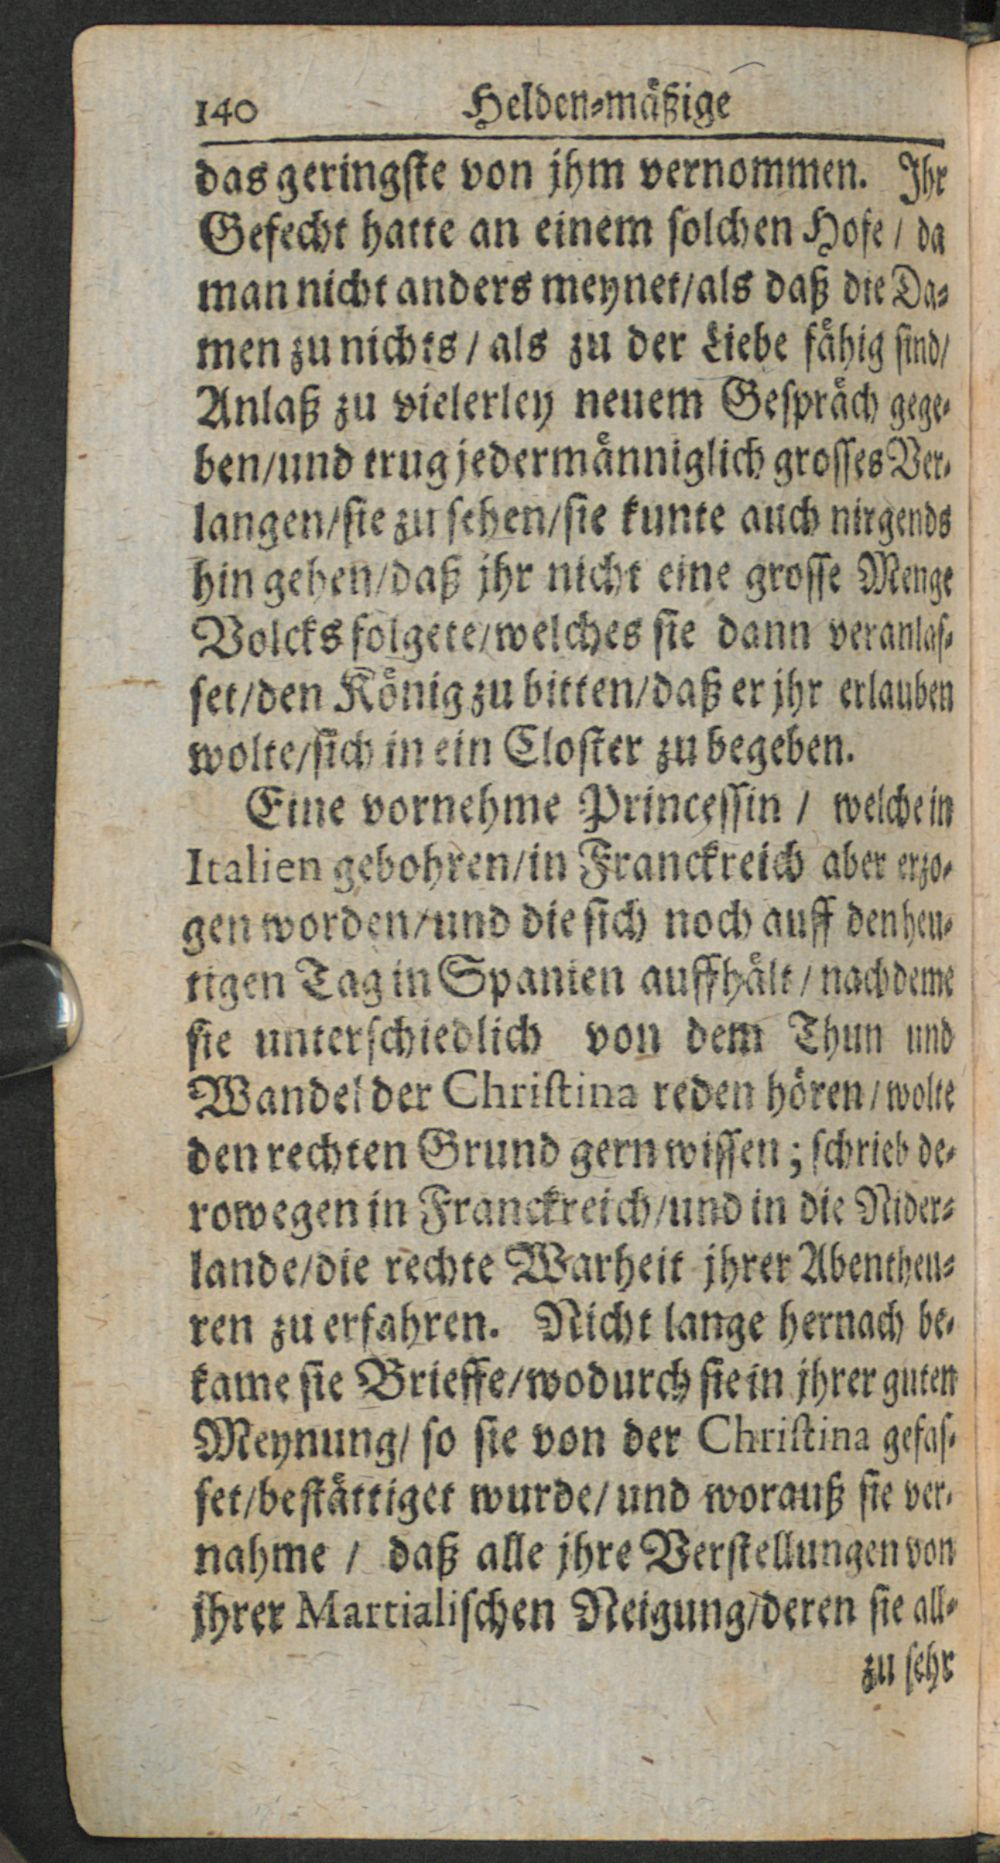 140 Helden-mäßige
das geringste von jhm vernommen. Ihr
Gefecht hatte an einem solchen Hofe / da
man nicht anders meynet/als daß die Da-
men zu nichts / als zu der Liebe fähig sind/
Anlaß zu vielerley neuem Gespräch gege-
ben/und trug jedermänniglich grosses Ver-
langen/sie zu sehen/sie kunte auch nirgends
hin gehen/daß jhr nicht eine grosse Menge
Volcks folgete/welches sie dann veranlas-
set/den König zu bitten/daß er jhr erlauben
wolte/sich in ein Closter zu begeben.
Eine vornehme Princessin / welche in
Italien gebohren/in Franckreich aber erzo-
gen worden/und die sich noch auff den heu-
tigen Tag in Spanien auffhält / nachdeme
sie unterschiedlich von dem Thun und
Wandel der Christina reden hören / wolte
den rechten Grund gern wissen; schrieb de-
rowegen in Franckreich/und in die Nider-
lande/die rechte Warheit jhrer Abentheu-
ren zu erfahren. Nicht lange hernach be-
kame sie Brieffe/wodurch sie in jhrer guten
Meynung/ so sie von der Christina gefas-
set/bestättiget wurde/ und worauß sie ver-
nahme / daß alle jhre Verstellungen von
jhrer Martialischen Neigung/deren sie all-
zu sehr